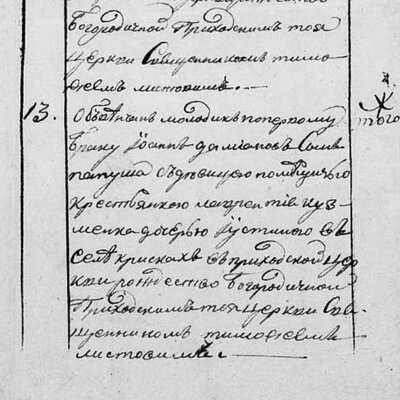 Богородичной Приходскимъ тоя
церкви Священникомъ тимо
ѳеемъ листовимъ. —
13. Обвѣнчанъ молодикъ поперному
браку Іоаннъ даміановъ Сынъ
папуша Съдѣвицею помѣщичьего
крестьянкою лаврентія куз
менка дочерью Іустиною въ
селѣ крискахъ въ приходской цер
кви рождество Богородичной
Приходскимъ тоя церкви Свя
щенникомъ тимоѳеемъ
листовимъ. —
того